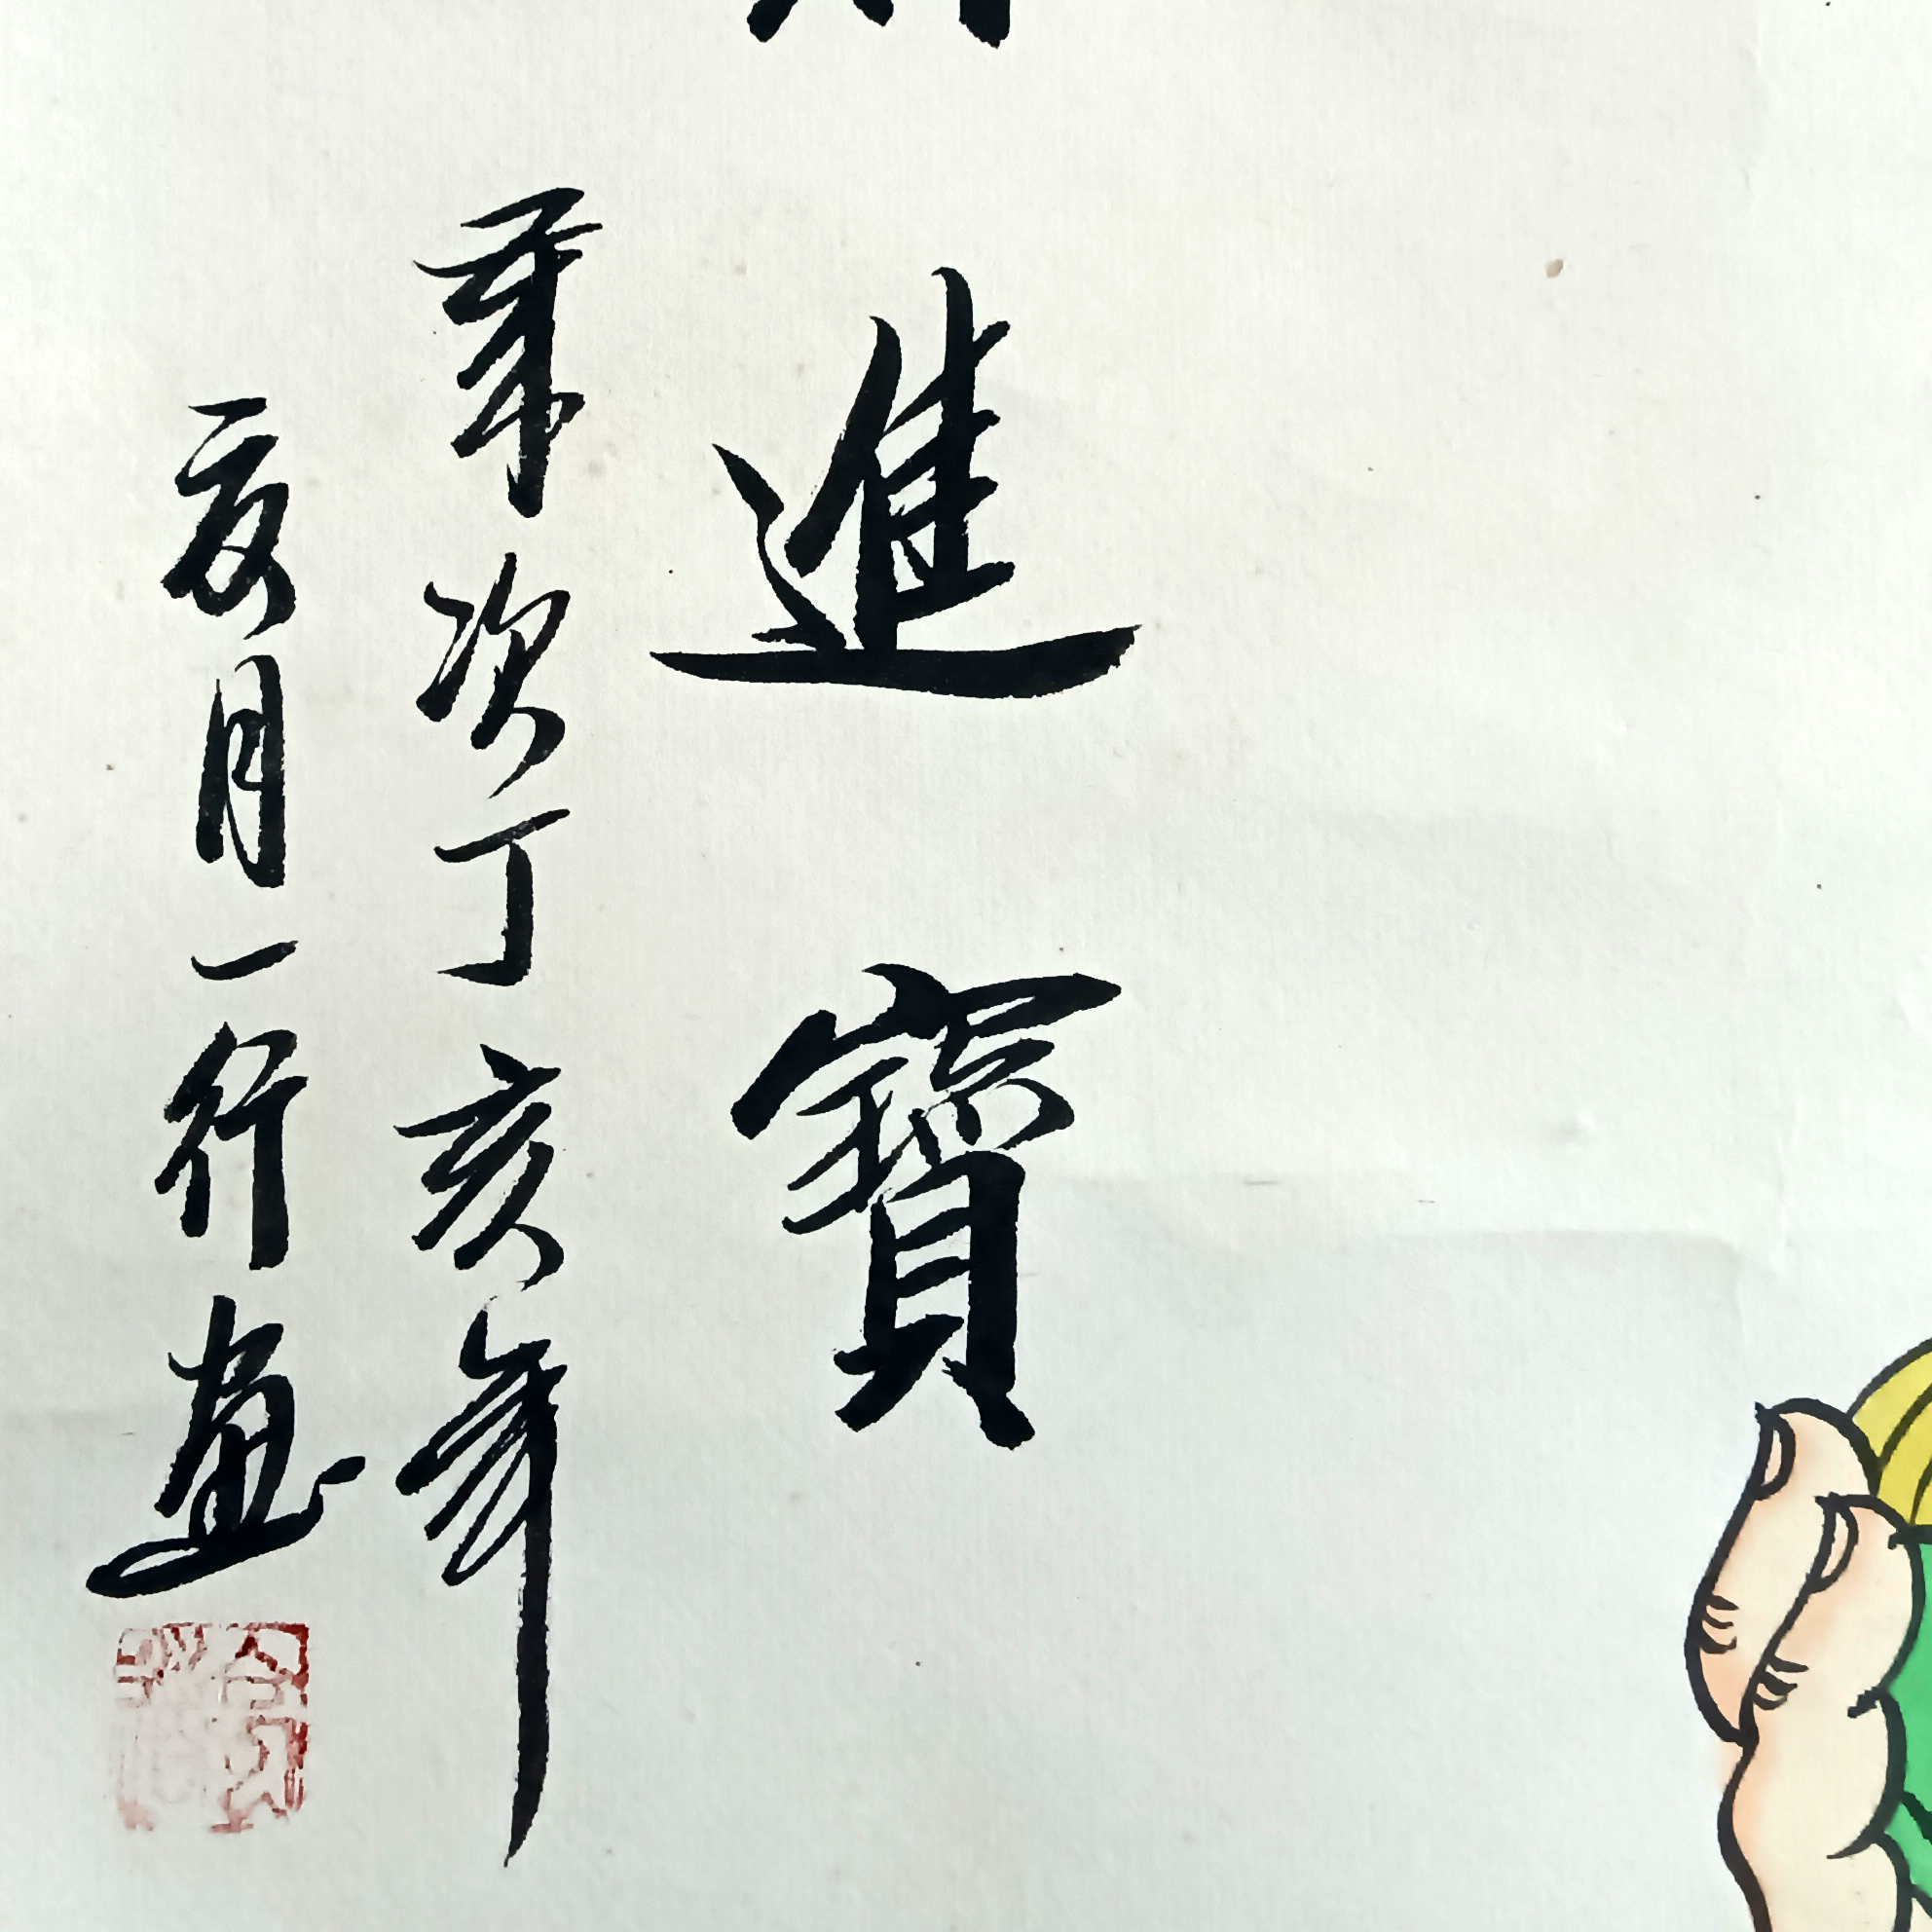 進寶
歲次丁亥年
夏月一行画